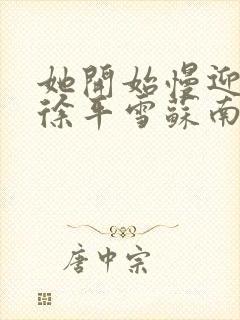 她開始慢迎
徐平雪蘇南
唐中宗